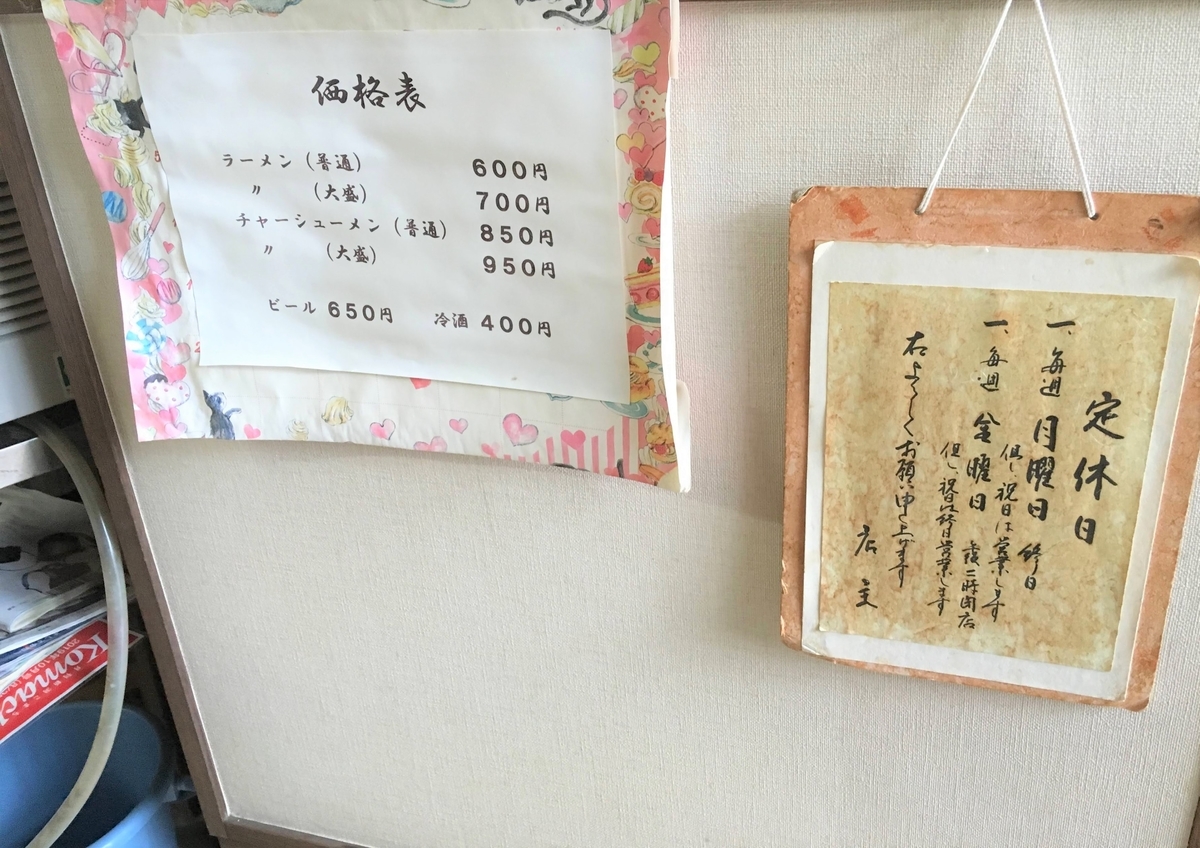 価格表
ラーメン（普通） 600円
〃 （大盛） 700円
チャーシューメン（普通） 850円
〃 （大盛） 950円
ビール 650円 冷酒 400円
定休日
一、毎週 月曜日 終日
但し、祝日は営業します
一、毎週 金曜日 午後二時閉店
但し、祝日は終日営業します
右よろしくお願い申し上げます
店主
Komac
2019年10月